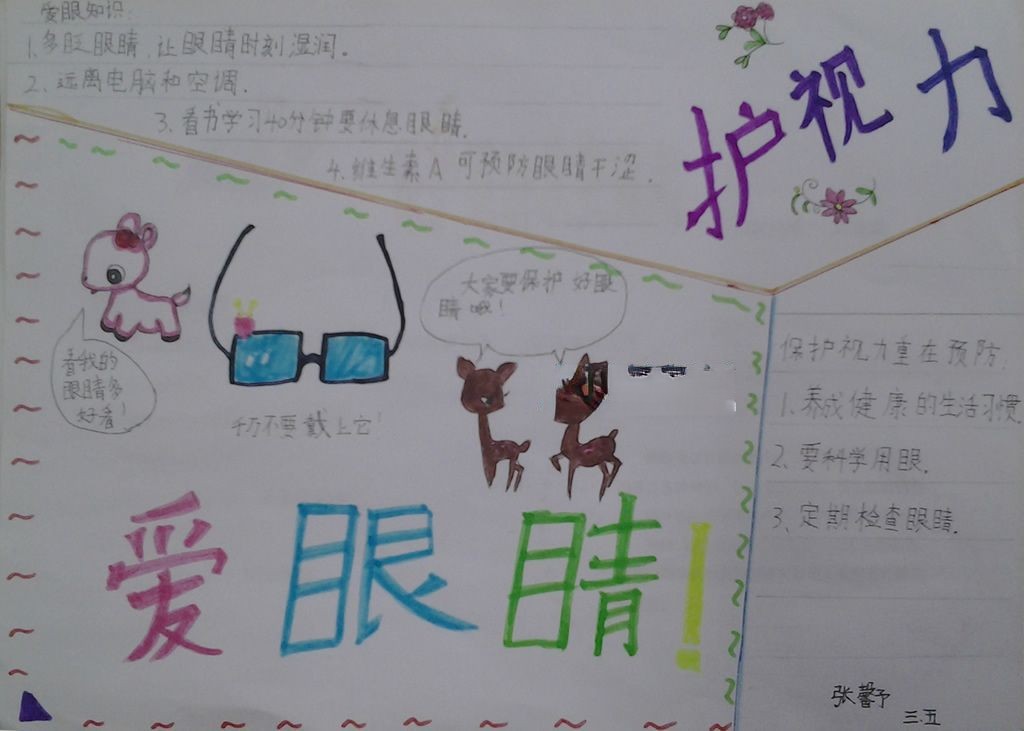 爱眼知识:
1.多眨眼睛,让眼睛时刻湿润。
2、远离电脑和空调.
3、看书学习40分钟要休息眼睛.
4.维生素A可预防眼睛干涩.
护视力
大家要保护好眼
睛哦!
看我的
眼睛多
好看!
千万不要戴上它!
爱眼睛!
保护视力重在预防.
1、养成健康的生活习惯
2、要科学用眼.
3、定期检查眼睛.
张馨予
三.五